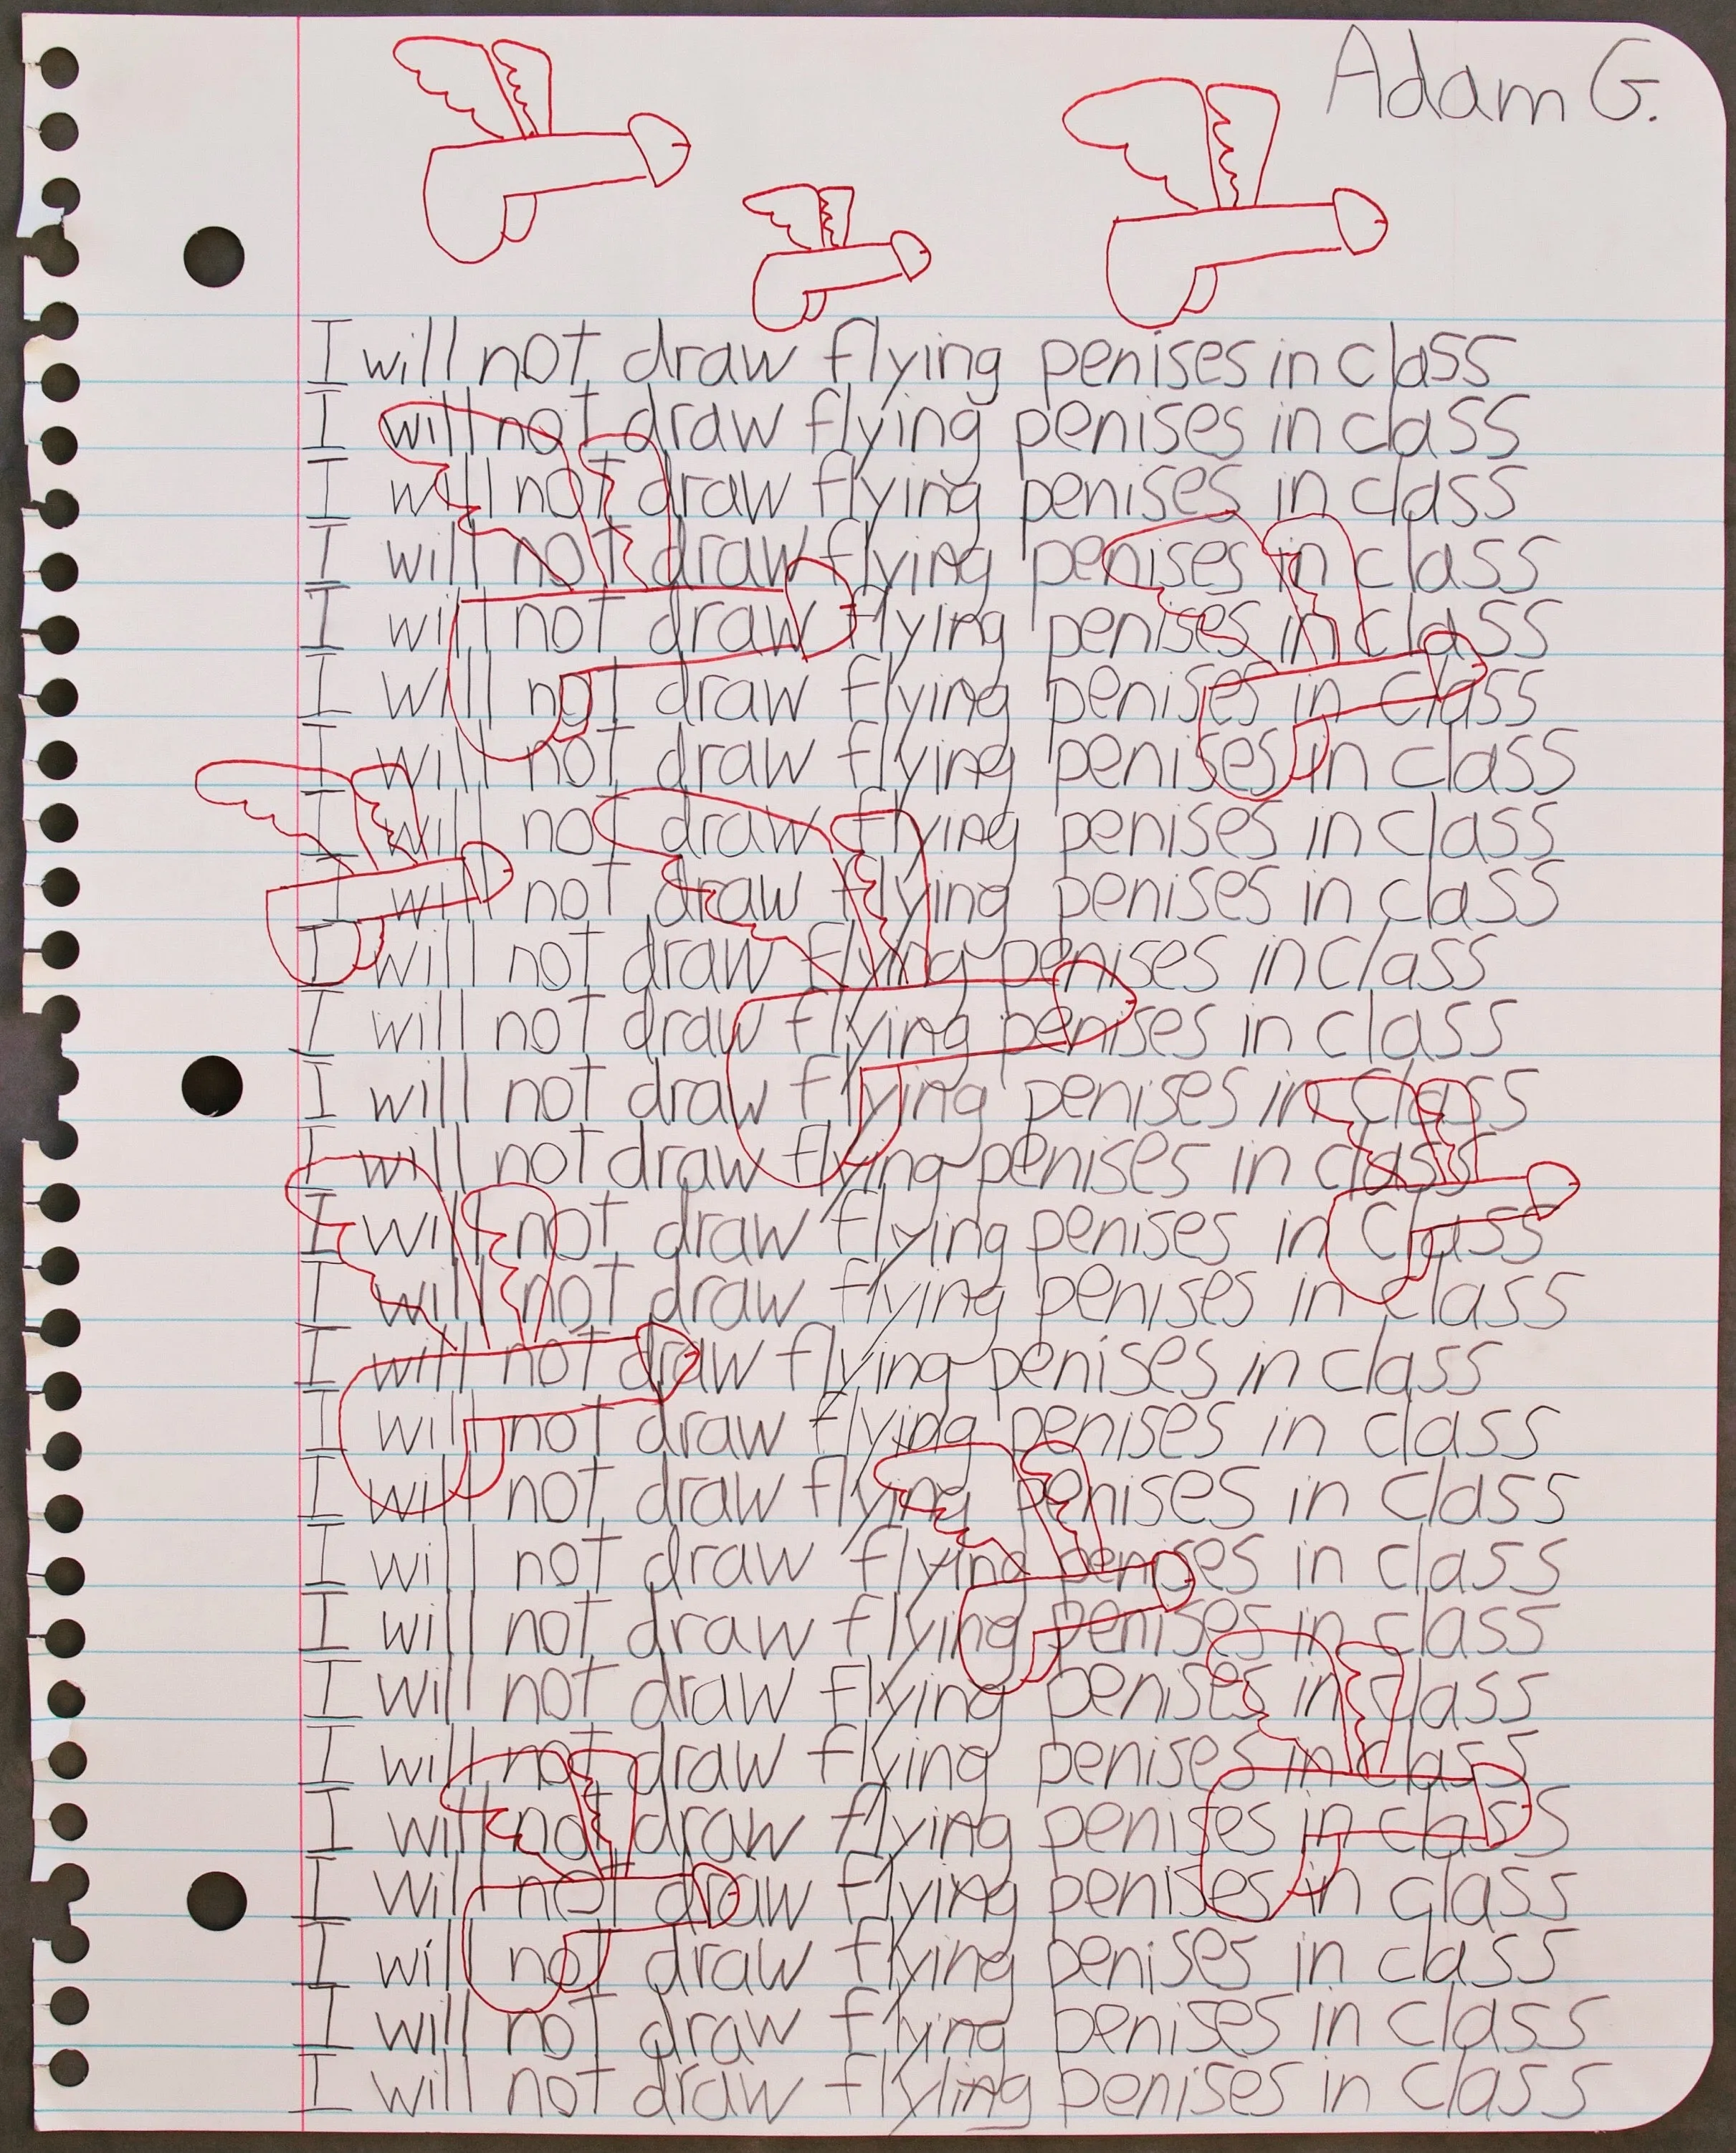 Adam G.
I will not draw flying penises in class
I will not draw flying penises in class
I will not draw flying penises in class
I will not draw flying penises in class
I will not draw flying penises in class
I will not draw flying penises in class
I will not draw flying penises in class
I will not draw flying penises in class
I will not draw flying penises in class
I will not draw flying penises in class
I will not draw flying penises in class
I will not draw flying penises in class
I will not draw flying penises in class
I will not draw flying penises in class
I will not draw flying penises in class
I will not draw flying penises in class
I will not draw flying penises in class
I will not draw flying penises in class
I will not draw flying penises in class
I will not draw flying penises in class
I will not draw flying penises in class
I will not draw flying penises in class
I will not draw flying penises in class
I will not draw flying penises in class
I will not draw flying penises in class
I will not draw flying penises in class
I will not draw flying penises in class